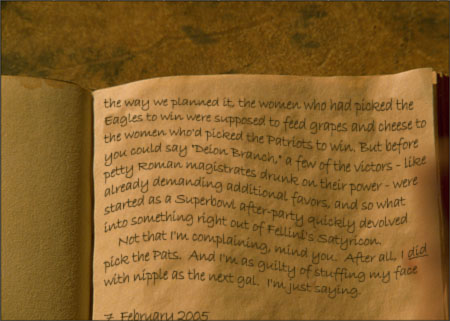 the way we planned it, the women who had picked the
Eagles to win were supposed to feed grapes and cheese to
the women who'd picked the Patriots to win. But before
you could say "Deion Branch," a few of the victors - like
petty Roman magistrates drunk on their power - were
already demanding additional favors, and so what
started as a Superbowl after-party quickly devolved
into something right out of Fellini's Satyricon.
Not that I'm complaining, mind you. After all, I did
pick the Pats. And I'm as guilty of stuffing my face
with nipple as the next gal. I'm just saying.
7 February 2005